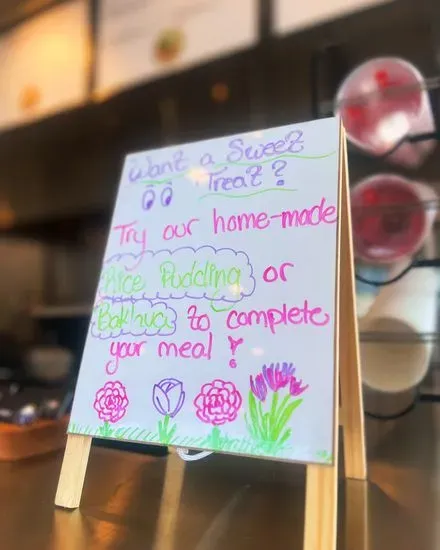 Want a Sweet
Treat?
Try our home-made
Rice Pudding or
Baklava to complete
your meal!